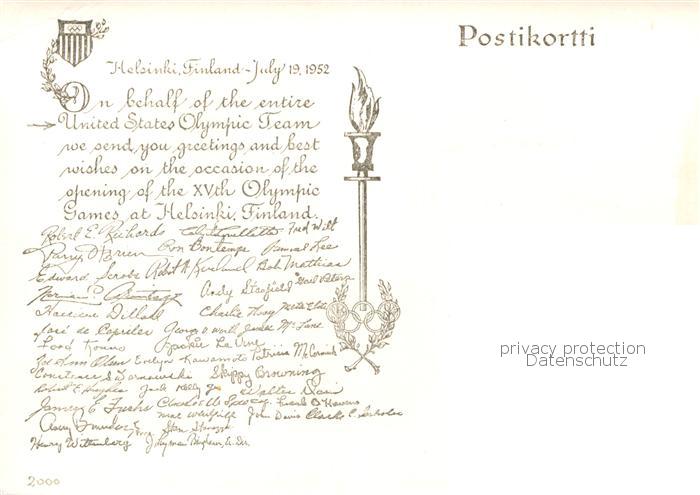 Postikortti
Helsinki, Finland - July 19, 1952
On behalf of the entire
United States Olympic Team
we send you greetings and best
wishes on the occasion of the
opening of the XVth Olympic
Games at Helsinki, Finland.
Robert E. Richards Fred Wilt
Parry O'Brien Ron Bontemps Samuel Lee
Edward Bob Mathias
Norman Armitage Andy Stanfield Gail Peters
Harrison Dillard Charlie Moore
José de Capriles George James McLane
Ford Konno Jackie LaVine
Zoe Ann Olsen Evelyn Kawamoto Patricia McCormick
Constance S. Darnawski Skippy Browning
Robert F. Hughes Jack Kelly Jr. Walter Davis
James E. Fuchs Charles
Mac John Davis
Stan Stanczyk
Henry Wittenberg
2000
privacy protection
Datenschutz